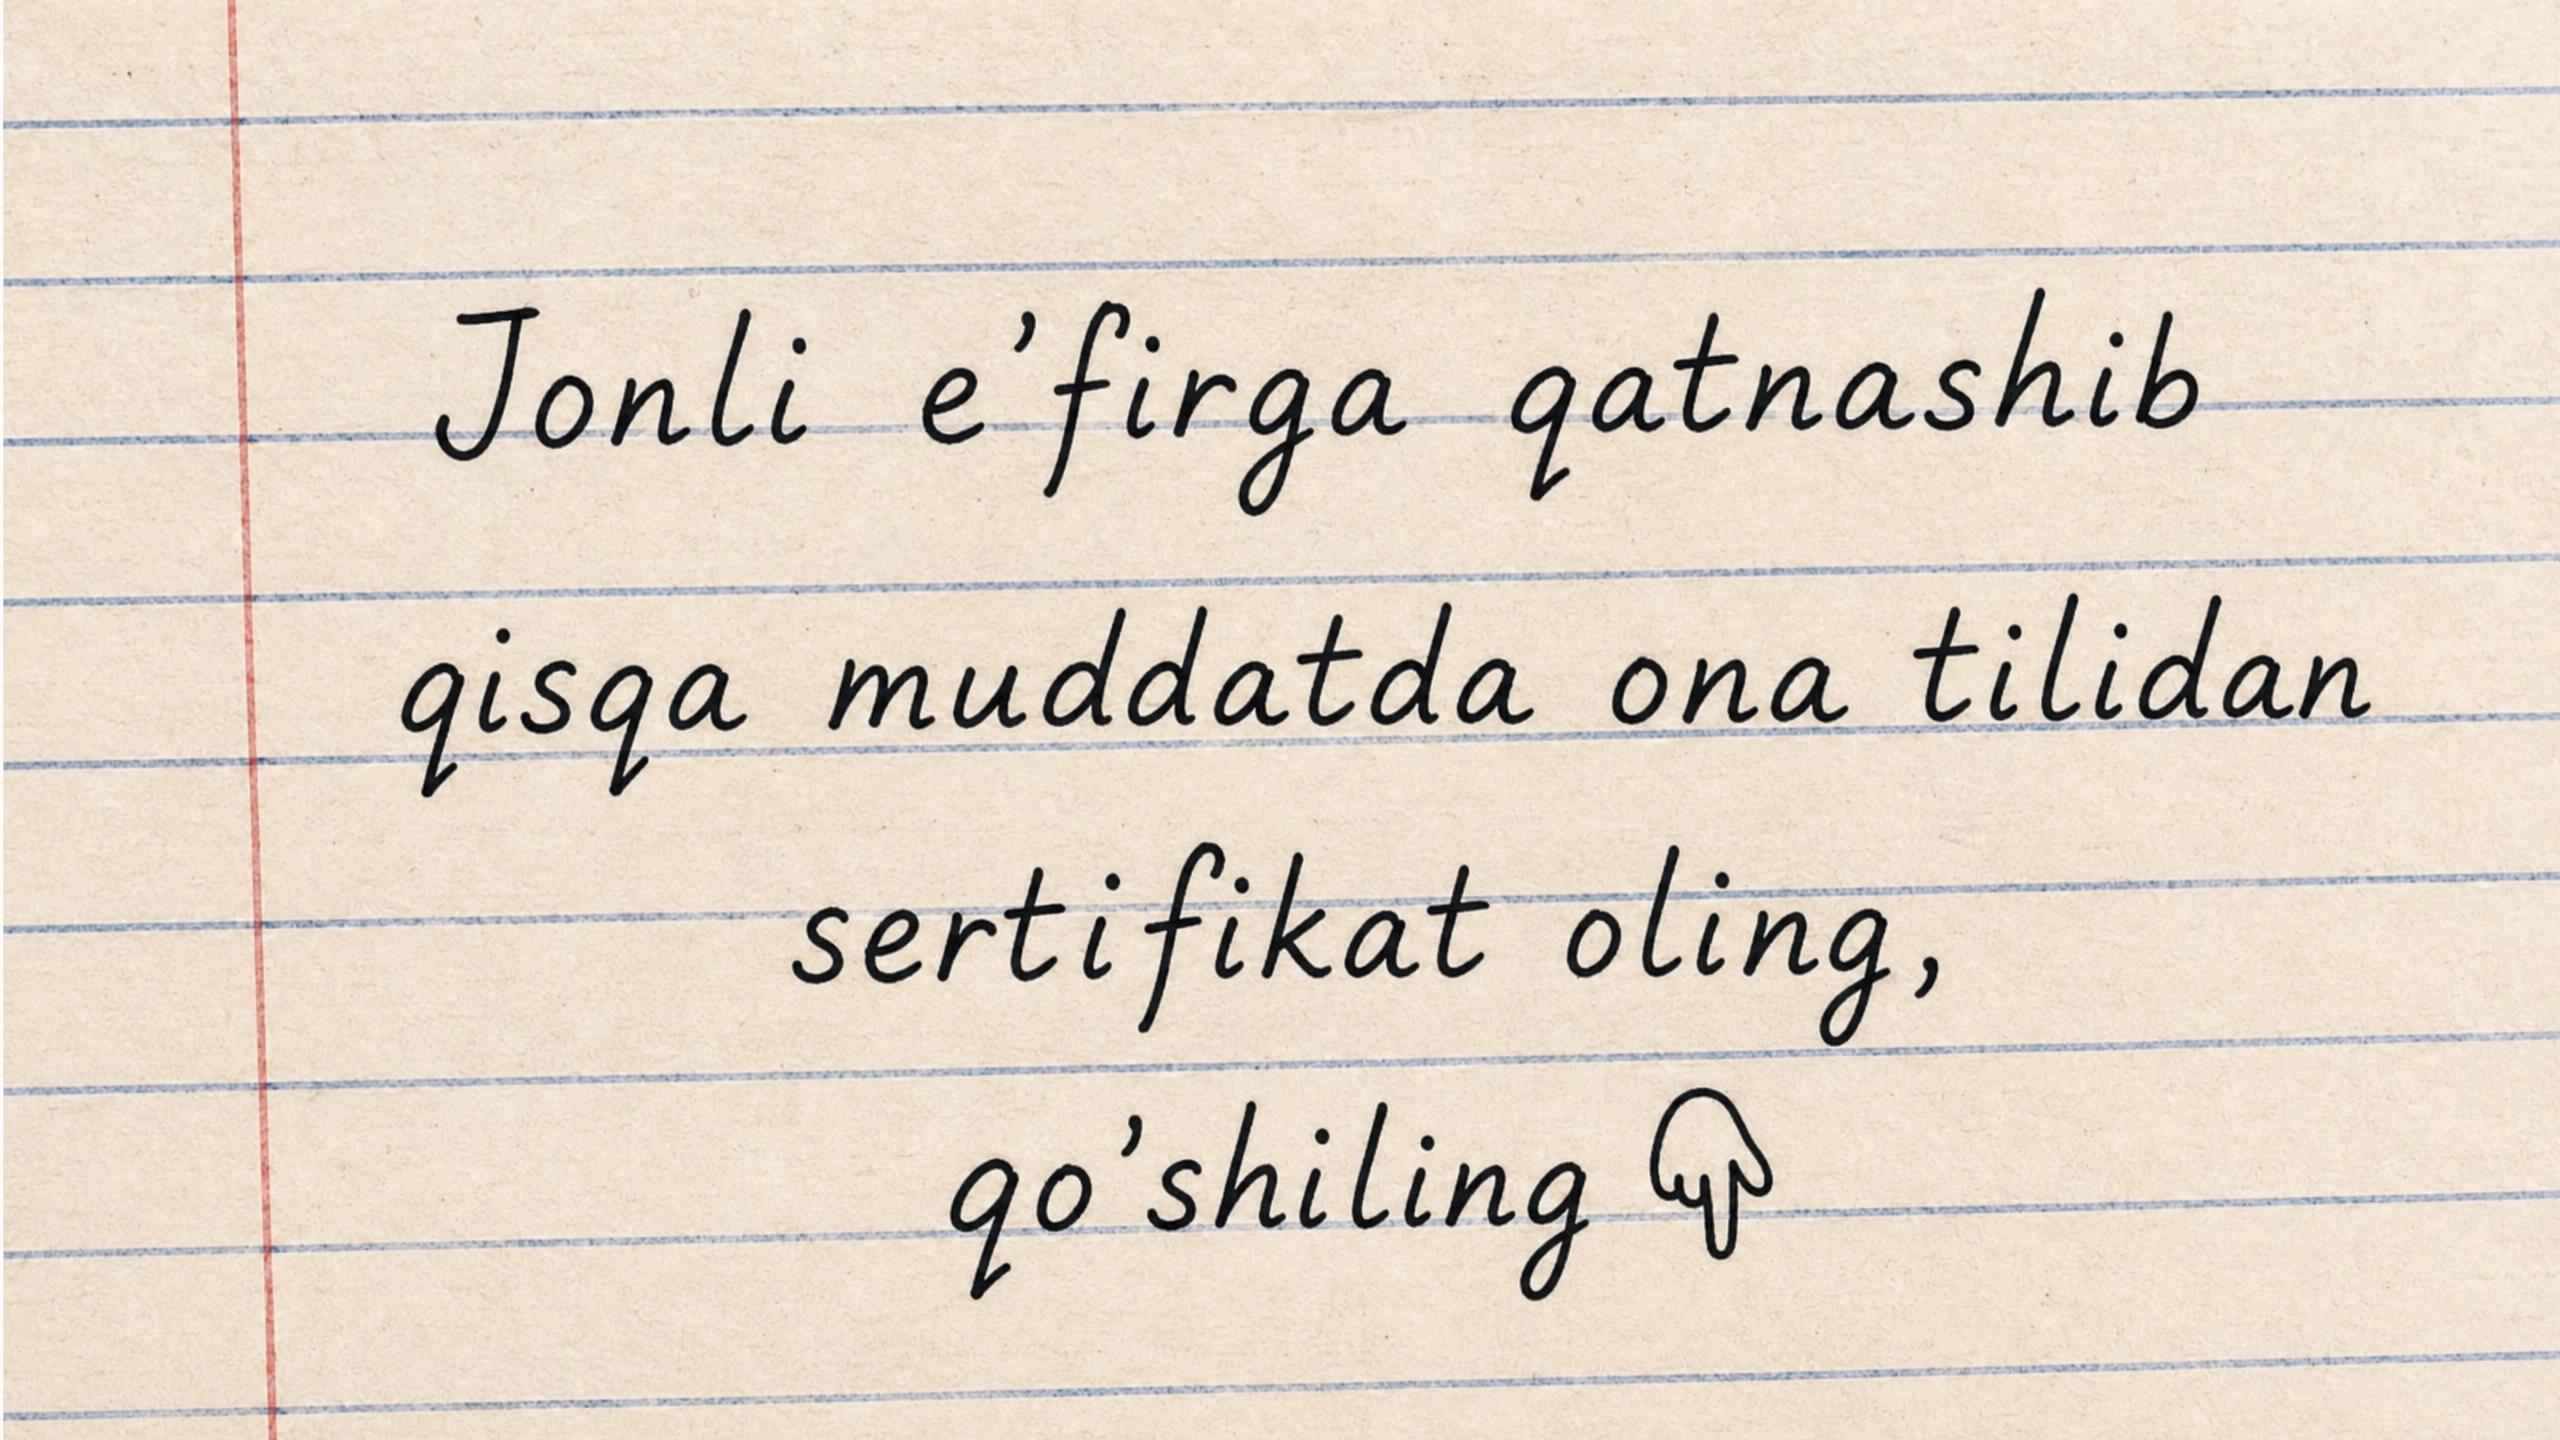 Jonli e’firga qatnashib
qisqa muddatda ona tilidan
sertifikat oling,
qo’shiling 👇